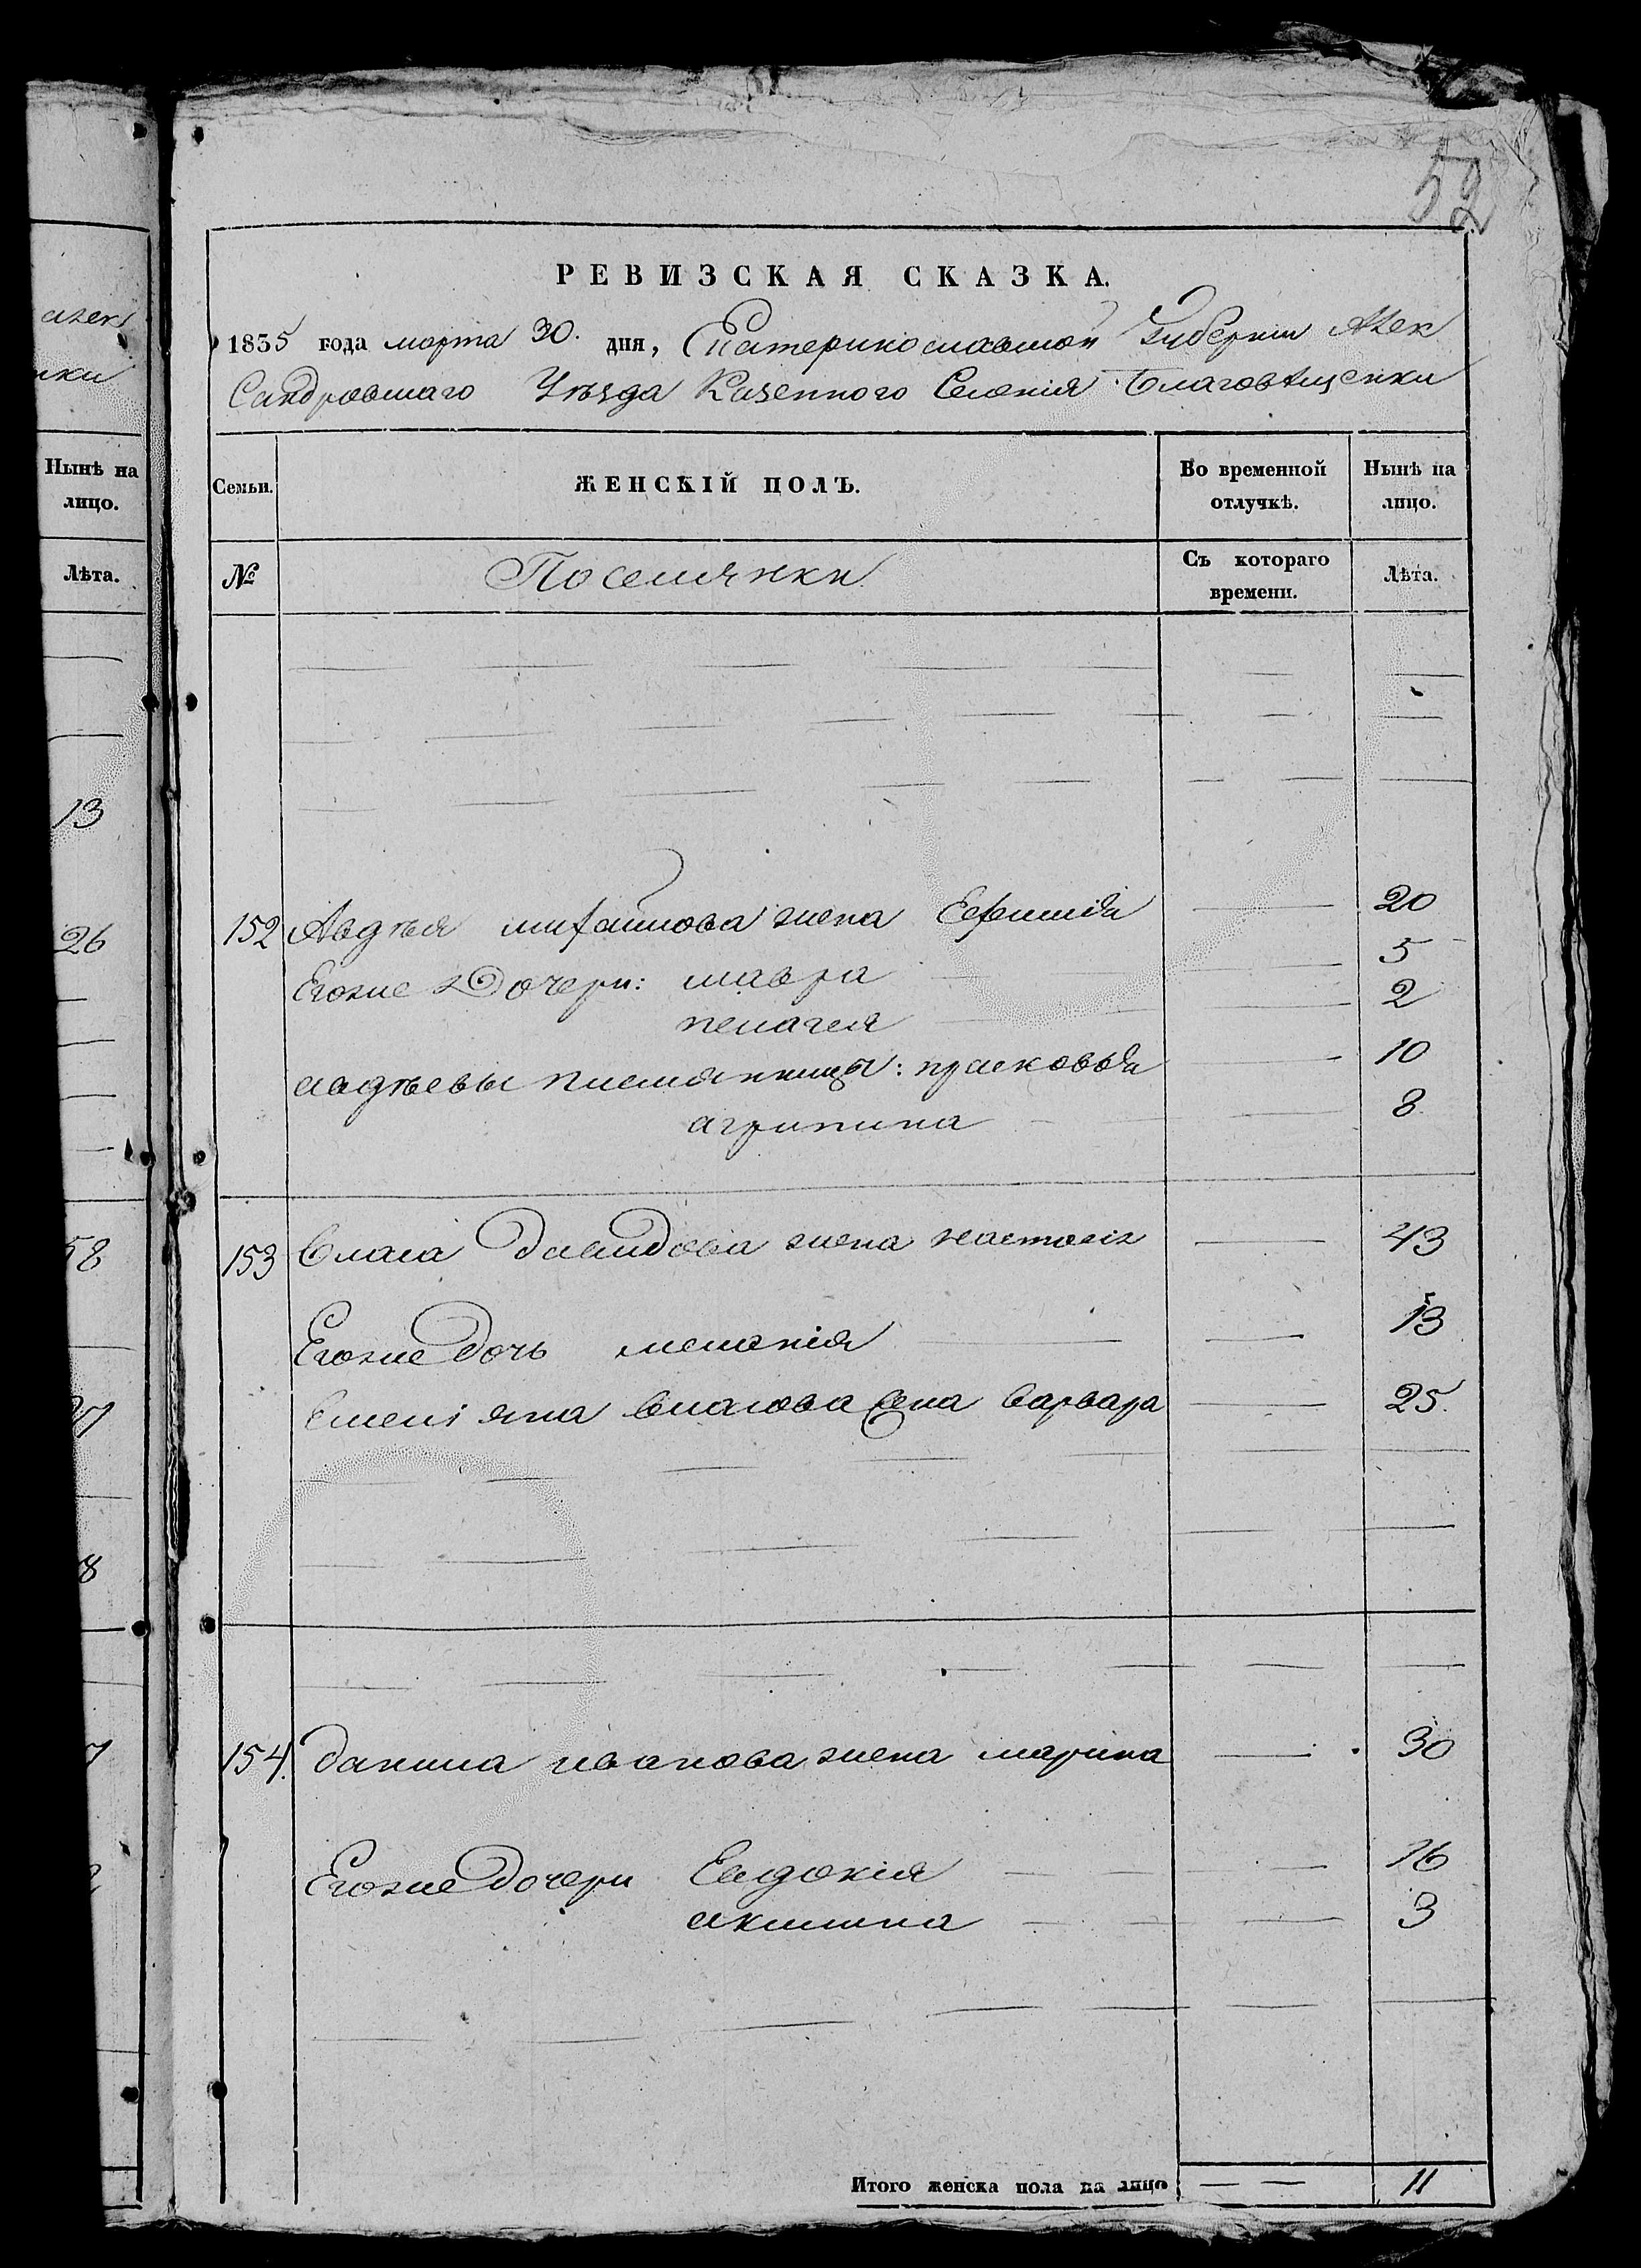 52
РЕВИЗСКАЯ СКАЗКА.
1835 года марта 30. дня, Екатеринославской Губернии Алек
Сандровскаго Уѣзда Казенного Селенія Благовѣщенки
Нынѣ на лицо.
Лѣта.
13
26
58
Семьи.
ЖЕНСКІЙ ПОЛЪ.
Во временной отлучкѣ.
Нынѣ на лицо.
№
Поселянки
Съ котораго времени.
Лѣта.
152 Авдѣя михайлова жена Ефимія 20
Егоже Дочери: мавра 5
пелагея 2
авдѣевы племянницы: прасковья 10
агрипина 8
153 Власа давидова жена настасія 43
Егоже дочь меланія 13
Емеліяна власова жена варвара 25.
154. данила иванова жена марина 30
Егоже дочери Евдокія 16
акилина 3
Итого женска пола на лицо 11